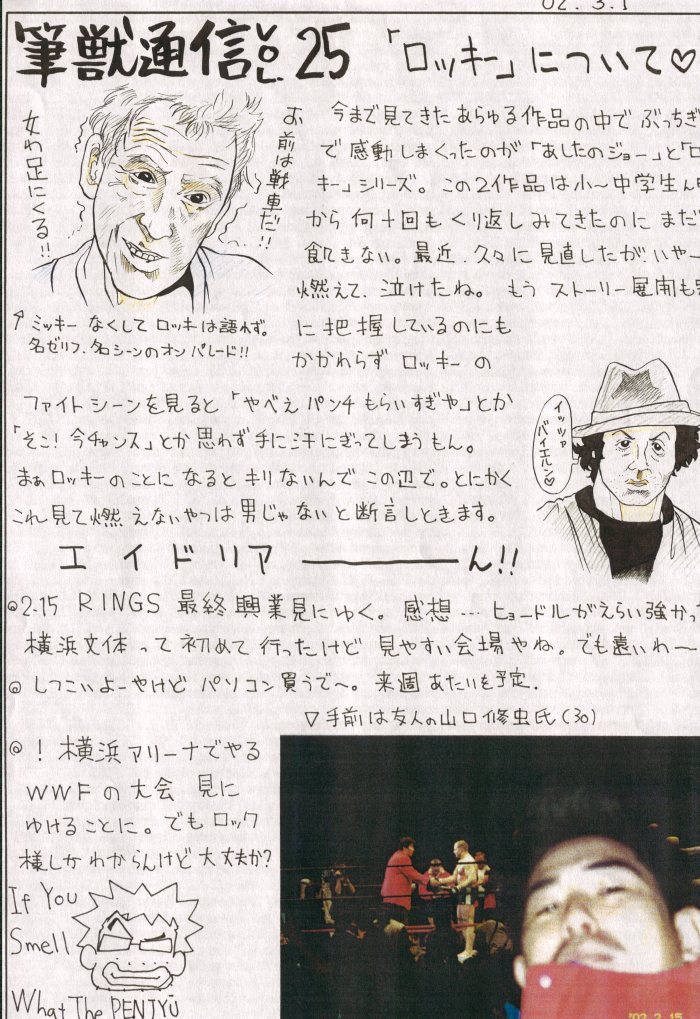 02.3.1
筆獣通信 VOL.25 「ロッキー」について♡
女わ足にくる!!
お前は戦車だ!!
今まで見てきたあらゆる作品の中で ぶっちぎ
で感動しまくったのが「あしたのジョー」と「ロ
キー」シリーズ。この2作品は小〜中学生ん
から何十回もくり返しみてきたのに まだ
飽きない。最近、久々に見直したが、いやー
燃えて、泣けたね。もう ストーリー展開も
に把握しているのにも
かかわらず ロッキーの
↗ミッキーなくして ロッキーは語れず。
名ゼリフ、名シーンのオンパレード!!
ファイトシーンを見ると「やべえ パンチ もらいすぎや」とか
「そこ!今チャンス」とか思わず手に汗にぎってしまうもん。
まぁロッキーのことになるとキリないんで この辺で。とにかく
これ見て燃えないやつは男じゃないと断言しときます。
イッツァ
バイエルン♡
エイドリアーーーーーん!!
◎2.15 RINGS 最終興業見にゆく。感想…ヒョードルがえらい強かっ
横浜文体って初めて行ったけど 見やすい会場やね。でも遠いわ〜
◎しつこいよーやけど パソコン買うで〜。来週あたいを予定.
▽手前は友人の山口修虫氏(30)
◎!横浜アリーナでやる
WWFの大会 見に
ゆけることに。でもロック
様しかわからんけど大丈夫か?
If You
Smell
What The PENJYŪ
'02 2 15